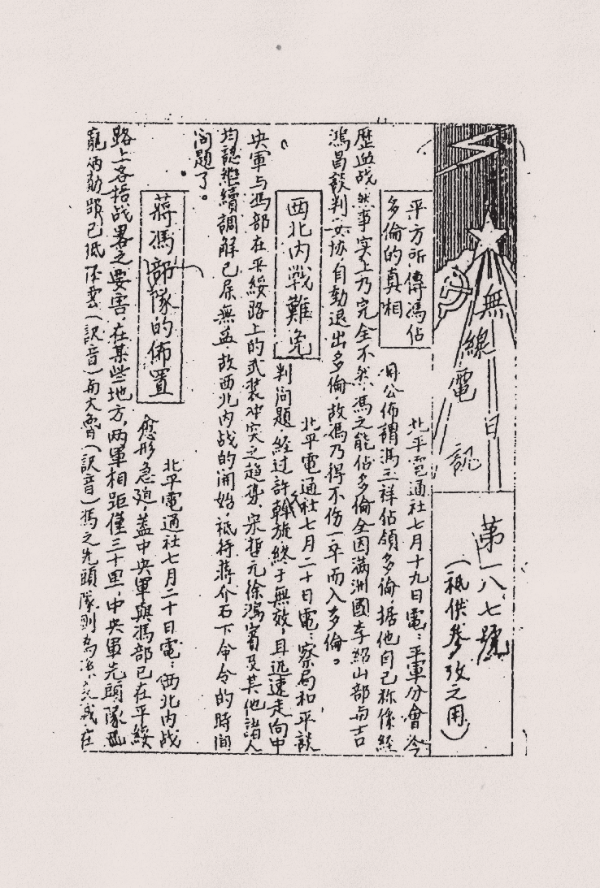 無線電日訊
第一八七號
（祇供參攷之用）
平方所傳馮佔
多倫的真相
北平電通社七月十九日電：平軍分會今
公佈謂馮玉祥佔領多倫據他自己称係經
歷血战然事实上乃完全不然馮之能佔多倫全因满洲國李紹山部与吉
鴻昌談判妥协自動退出多倫，故馮乃得不伤一卒而入多倫。
西北內戰難免
北平電通社七月二十日電：察局和平談
判问题，經过許斡旋，終于無效，且迅速走向中
央軍与馮部在平綏路上的武装冲突之趋势。宋哲元徐鴻賓及其他諸人
均認継續調解已屬無益，故西北内战的開始，祇待蒋介石下命令的時間
问题了。
蔣馮部隊的佈置
北平電通社七月二十日電：西北内战
愈形急迫，蓋中央軍與馮部已在平綏
路上各据战略之要害，在某些地方，两軍相距僅三十里，中央軍先頭隊
龐炳勛部已抵（訳音）与大（訳音）馮之先頭隊則為在